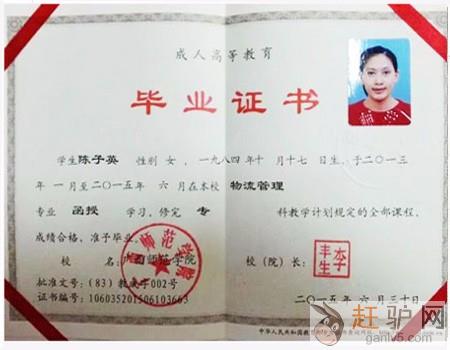 成人高等教育
毕业证书
学生陈子英 性别 女，一九八四年十 月十七日生，于二〇一三
年 一月至二〇一五年 六 月在本校 物流管理
专业 函授 学习，修完 专 科教学计划规定的全部课程，
成绩合格，准予毕业。
校 名：广西师范学院 校（院）长：
批准文号：(83）教成字002号
证书编号：106035201506103663 二〇一五年 六 月三十日
赶驴网
ganlv5.com